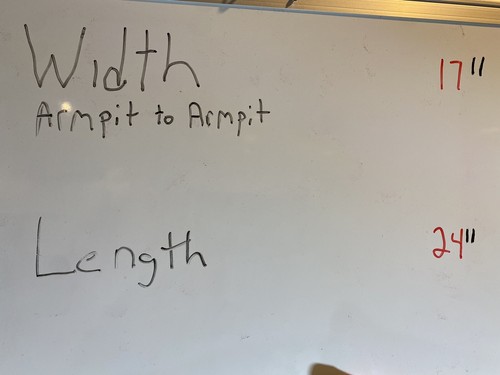 Width 17"
Armpit to Armpit
Length 24"